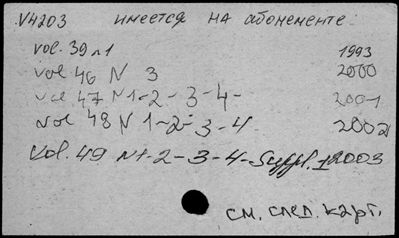 V4203 имеется на абонементе
vol. 39 n 1 1993
vol 46 N 3 2000
vol 47 N 1-2-3-4- 2001
vol 48 N 1-2-3-4 2002
Vol. 49 N 1-2-3-4-Suppl. 1 2003
см. след. карт.